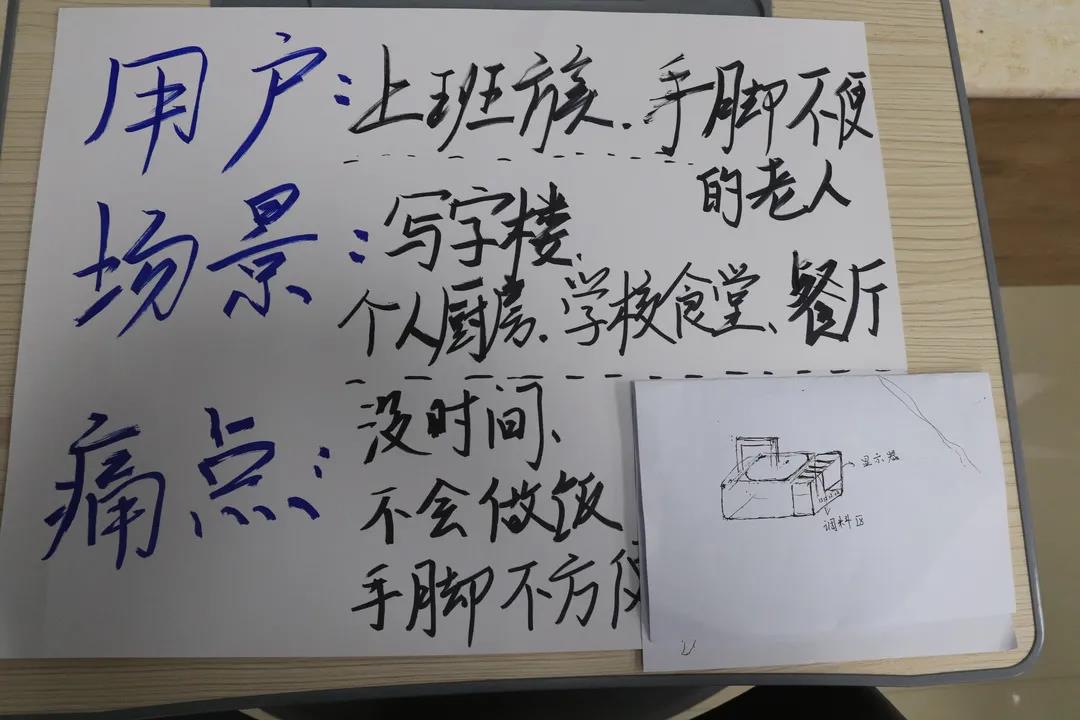 用户：上班族、手脚不便
的老人
场景：写字楼、
个人厨房、学校食堂、餐厅
痛点：没时间、
不会做饭
手脚不方便
显示器
调料区